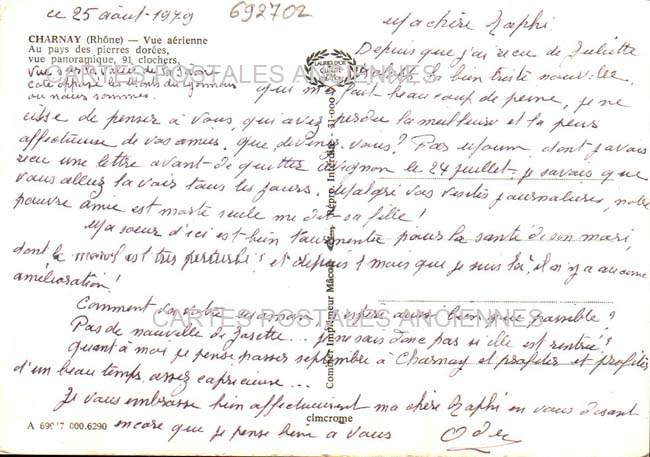 ce 25 août 1979
692702
CHARNAY (Rhône) — Vue aérienne
Au pays des pierres dorées,
vue panoramique, 91 clochers,
côté opposé les Monts du Lyonnais
où nous sommes.
CARTES POSTALES ANCIENNES
Ma chère Raphi
Depuis que j'ai reçu de Juliette
la bien triste nouvelle
qui me fait beaucoup de peine, je ne
cesse de penser à vous, qui avez perdu la meilleure et la plus
affectueuse de vos amies. Que devenez-vous? Par dont j'avais
reçu une lettre avant de quitter Avignon le 24 juillet, je savais que
vous alliez la voir tous les jours. Malgré vos visites journalières, notre
pauvre amie est morte seule me dit sa fille!
Ma soeur d'ici est bien tourmentée pour la santé de son mari,
dont le moral est très perturbé et depuis 1 mois que je suis là, il n'y a aucune
amélioration!
Comment va votre maman j'espère aussi bien que possible?
CARTES POSTALES ANCIENNES
Pas de nouvelle de Josette... je ne sais donc pas si elle est rentrée?
Quant à moi je pense passer septembre à Charnay et profiter et profiter
d'un beau temps assez capricieux...
Je vous embrasse bien affectueusement ma chère Raphi en vous disant
encore que je pense bien à vous
LAURÉAT D'OR
QUALITÉ
Combier Imprimeur Mâcon
Repro. Interdite - 21-000
cimcrome
A 69047 000.6290